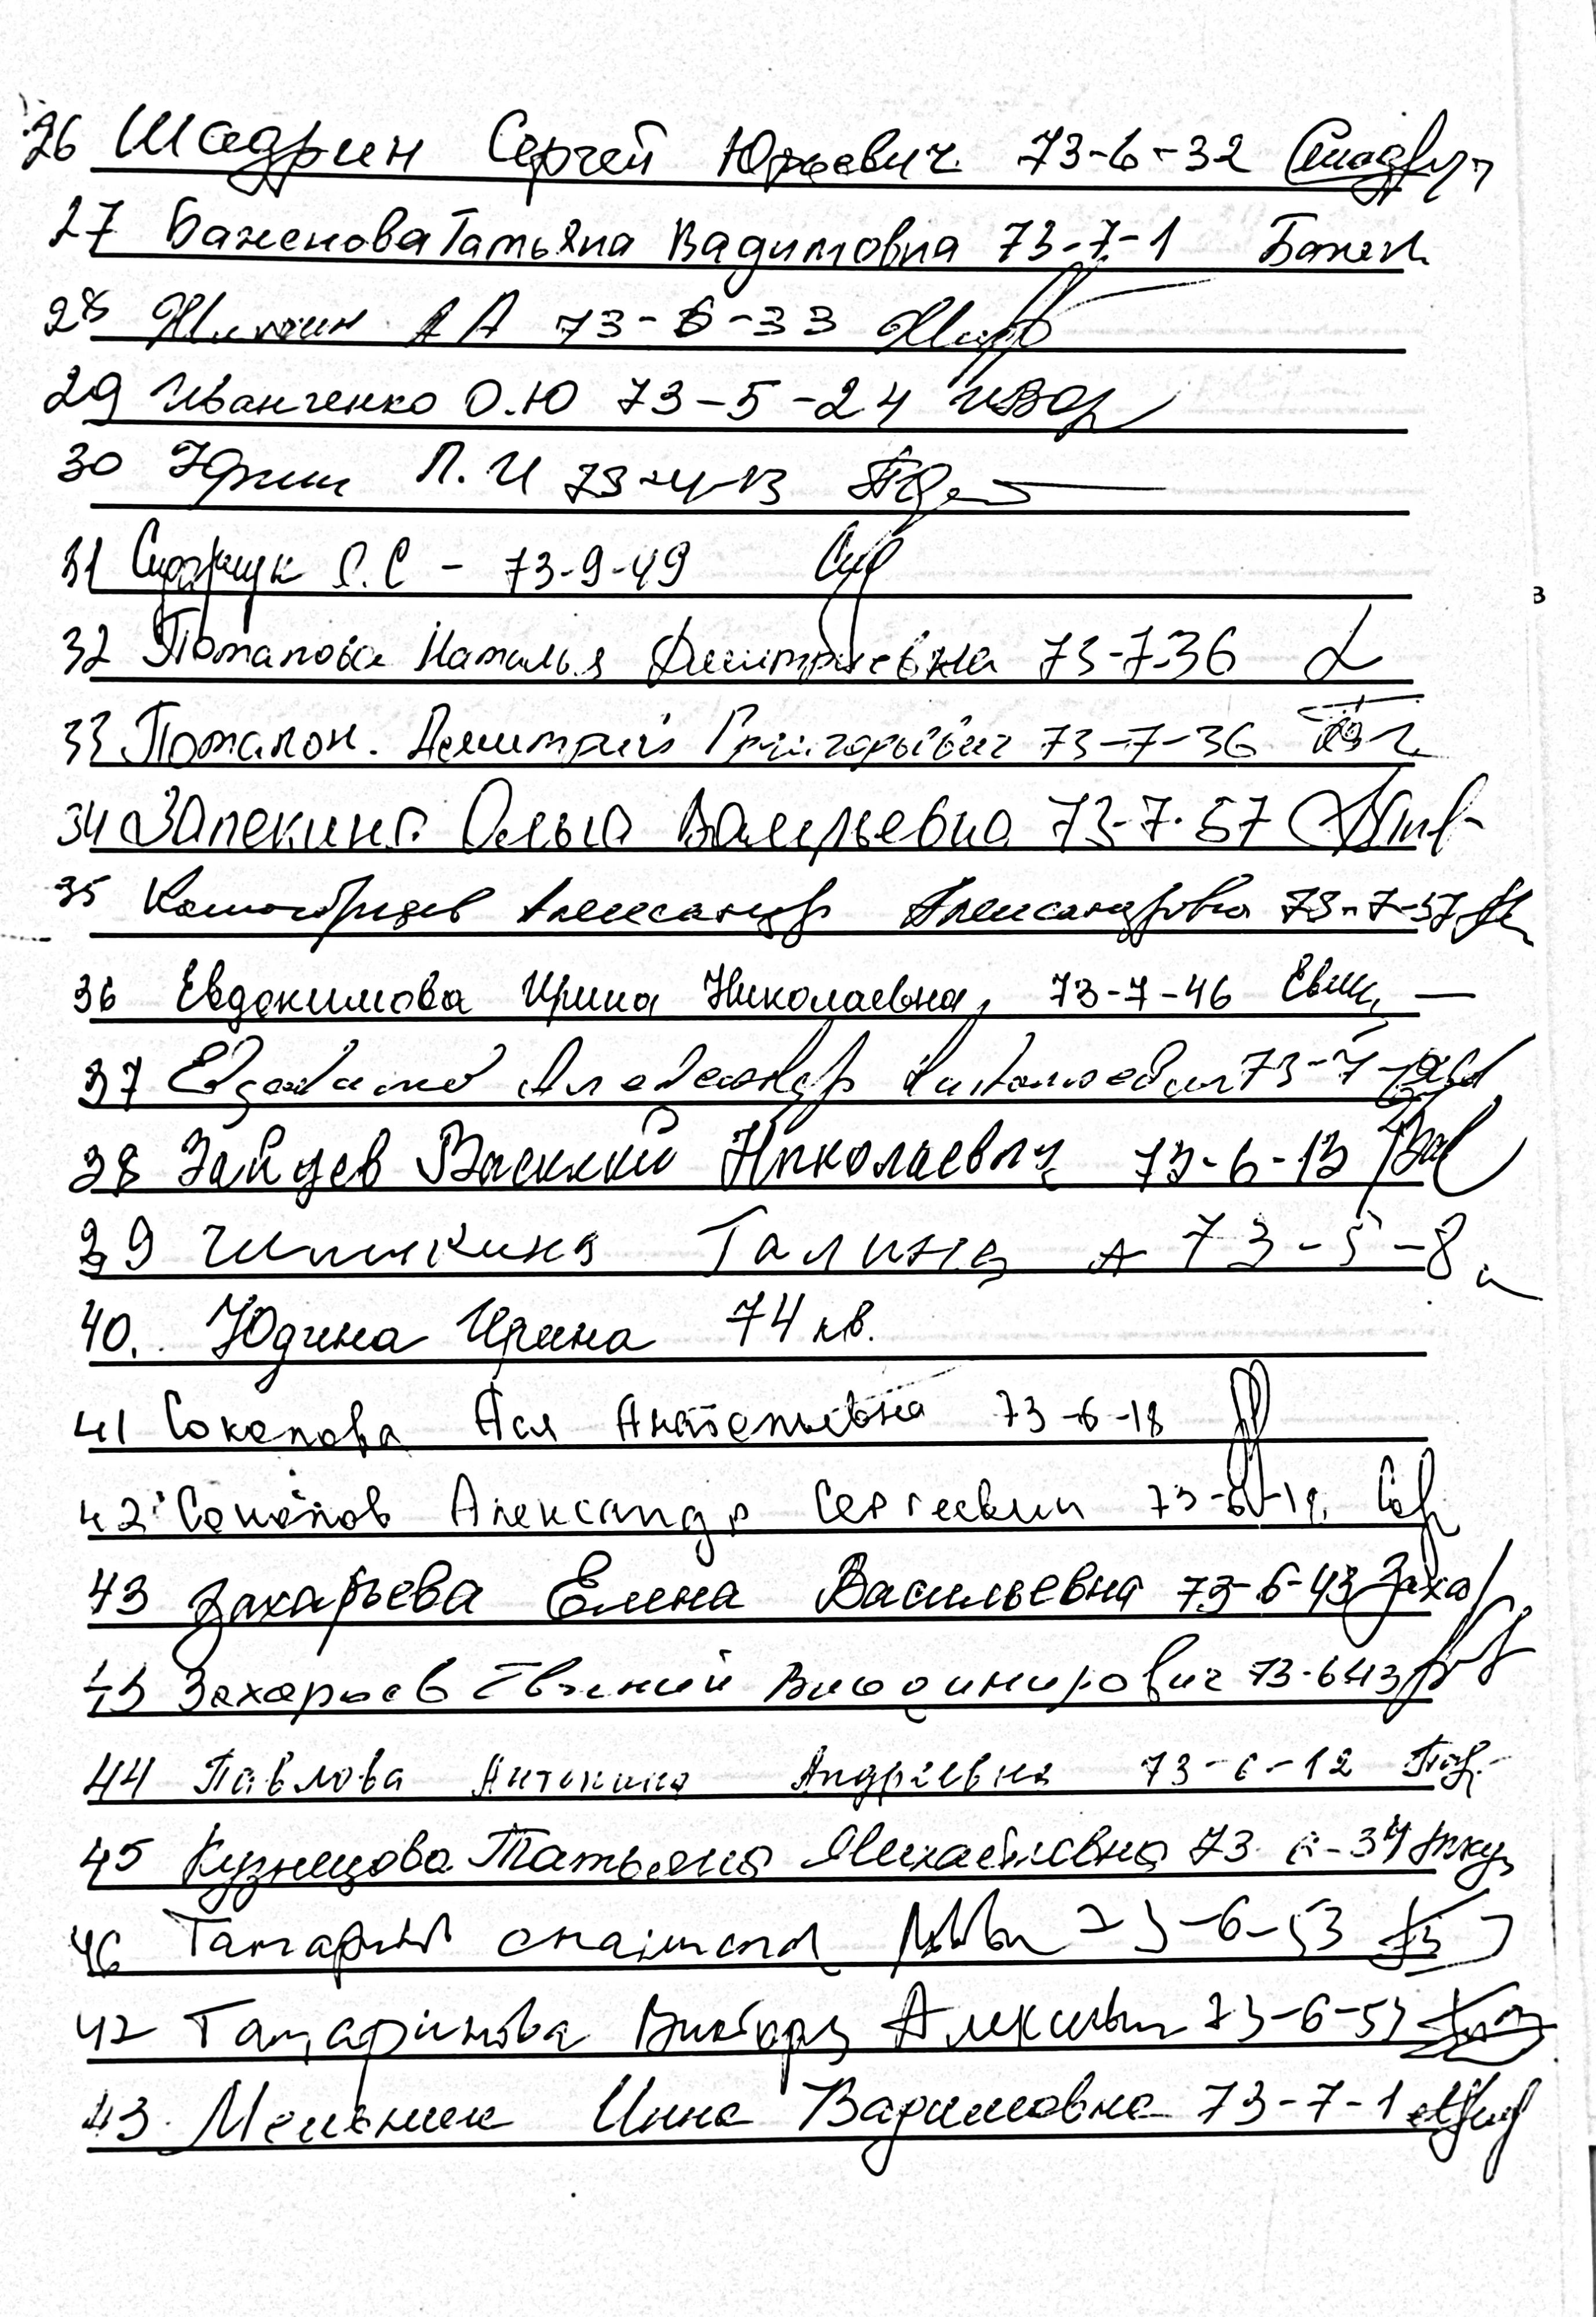 26 Шадрин Сергей Юрьевич 73-6-32
27 Баженова Татьяна Вадимовна 73-7-1 Бажен
28 А А 73-6-33
29 Иванченко О.Ю 73-5-24
30 Юрин П.И 73-4-13
31 С.С - 73-9-49
32 Потапова Наталья Дмитриевна 73-7-36
33 Потапов. Дмитрий Григорьевич 73-7-36
34 Запекина Ольга Валерьевна 73-7-57
35 Александр Александрович 73-7-57
36 Евдокимова Ирина Николаевна, 73-7-46
37 Евдокимов Александр Николаевич 73-7-
38 Зайцев Василий Николаевич 73-6-13
39 Галина А 73-5-8
40. Юдина Ирина 74 кв.
41 Соколова Ася Анатольевна 73-6-18
42 Соколов Александр Сергеевич 73-6-18
43 Захарьева Елена Васильевна 73-6-43 Захар
43 Захарьев Евгений Владимирович 73-643
44 Павлова Антонина Андреевна 73-6-12
45 Кузнецова Татьяна Михайловна 73 6-34
46 73-6-53
47 Татаринова 73-6-53
43. Инна Вадимовна 73-7-1